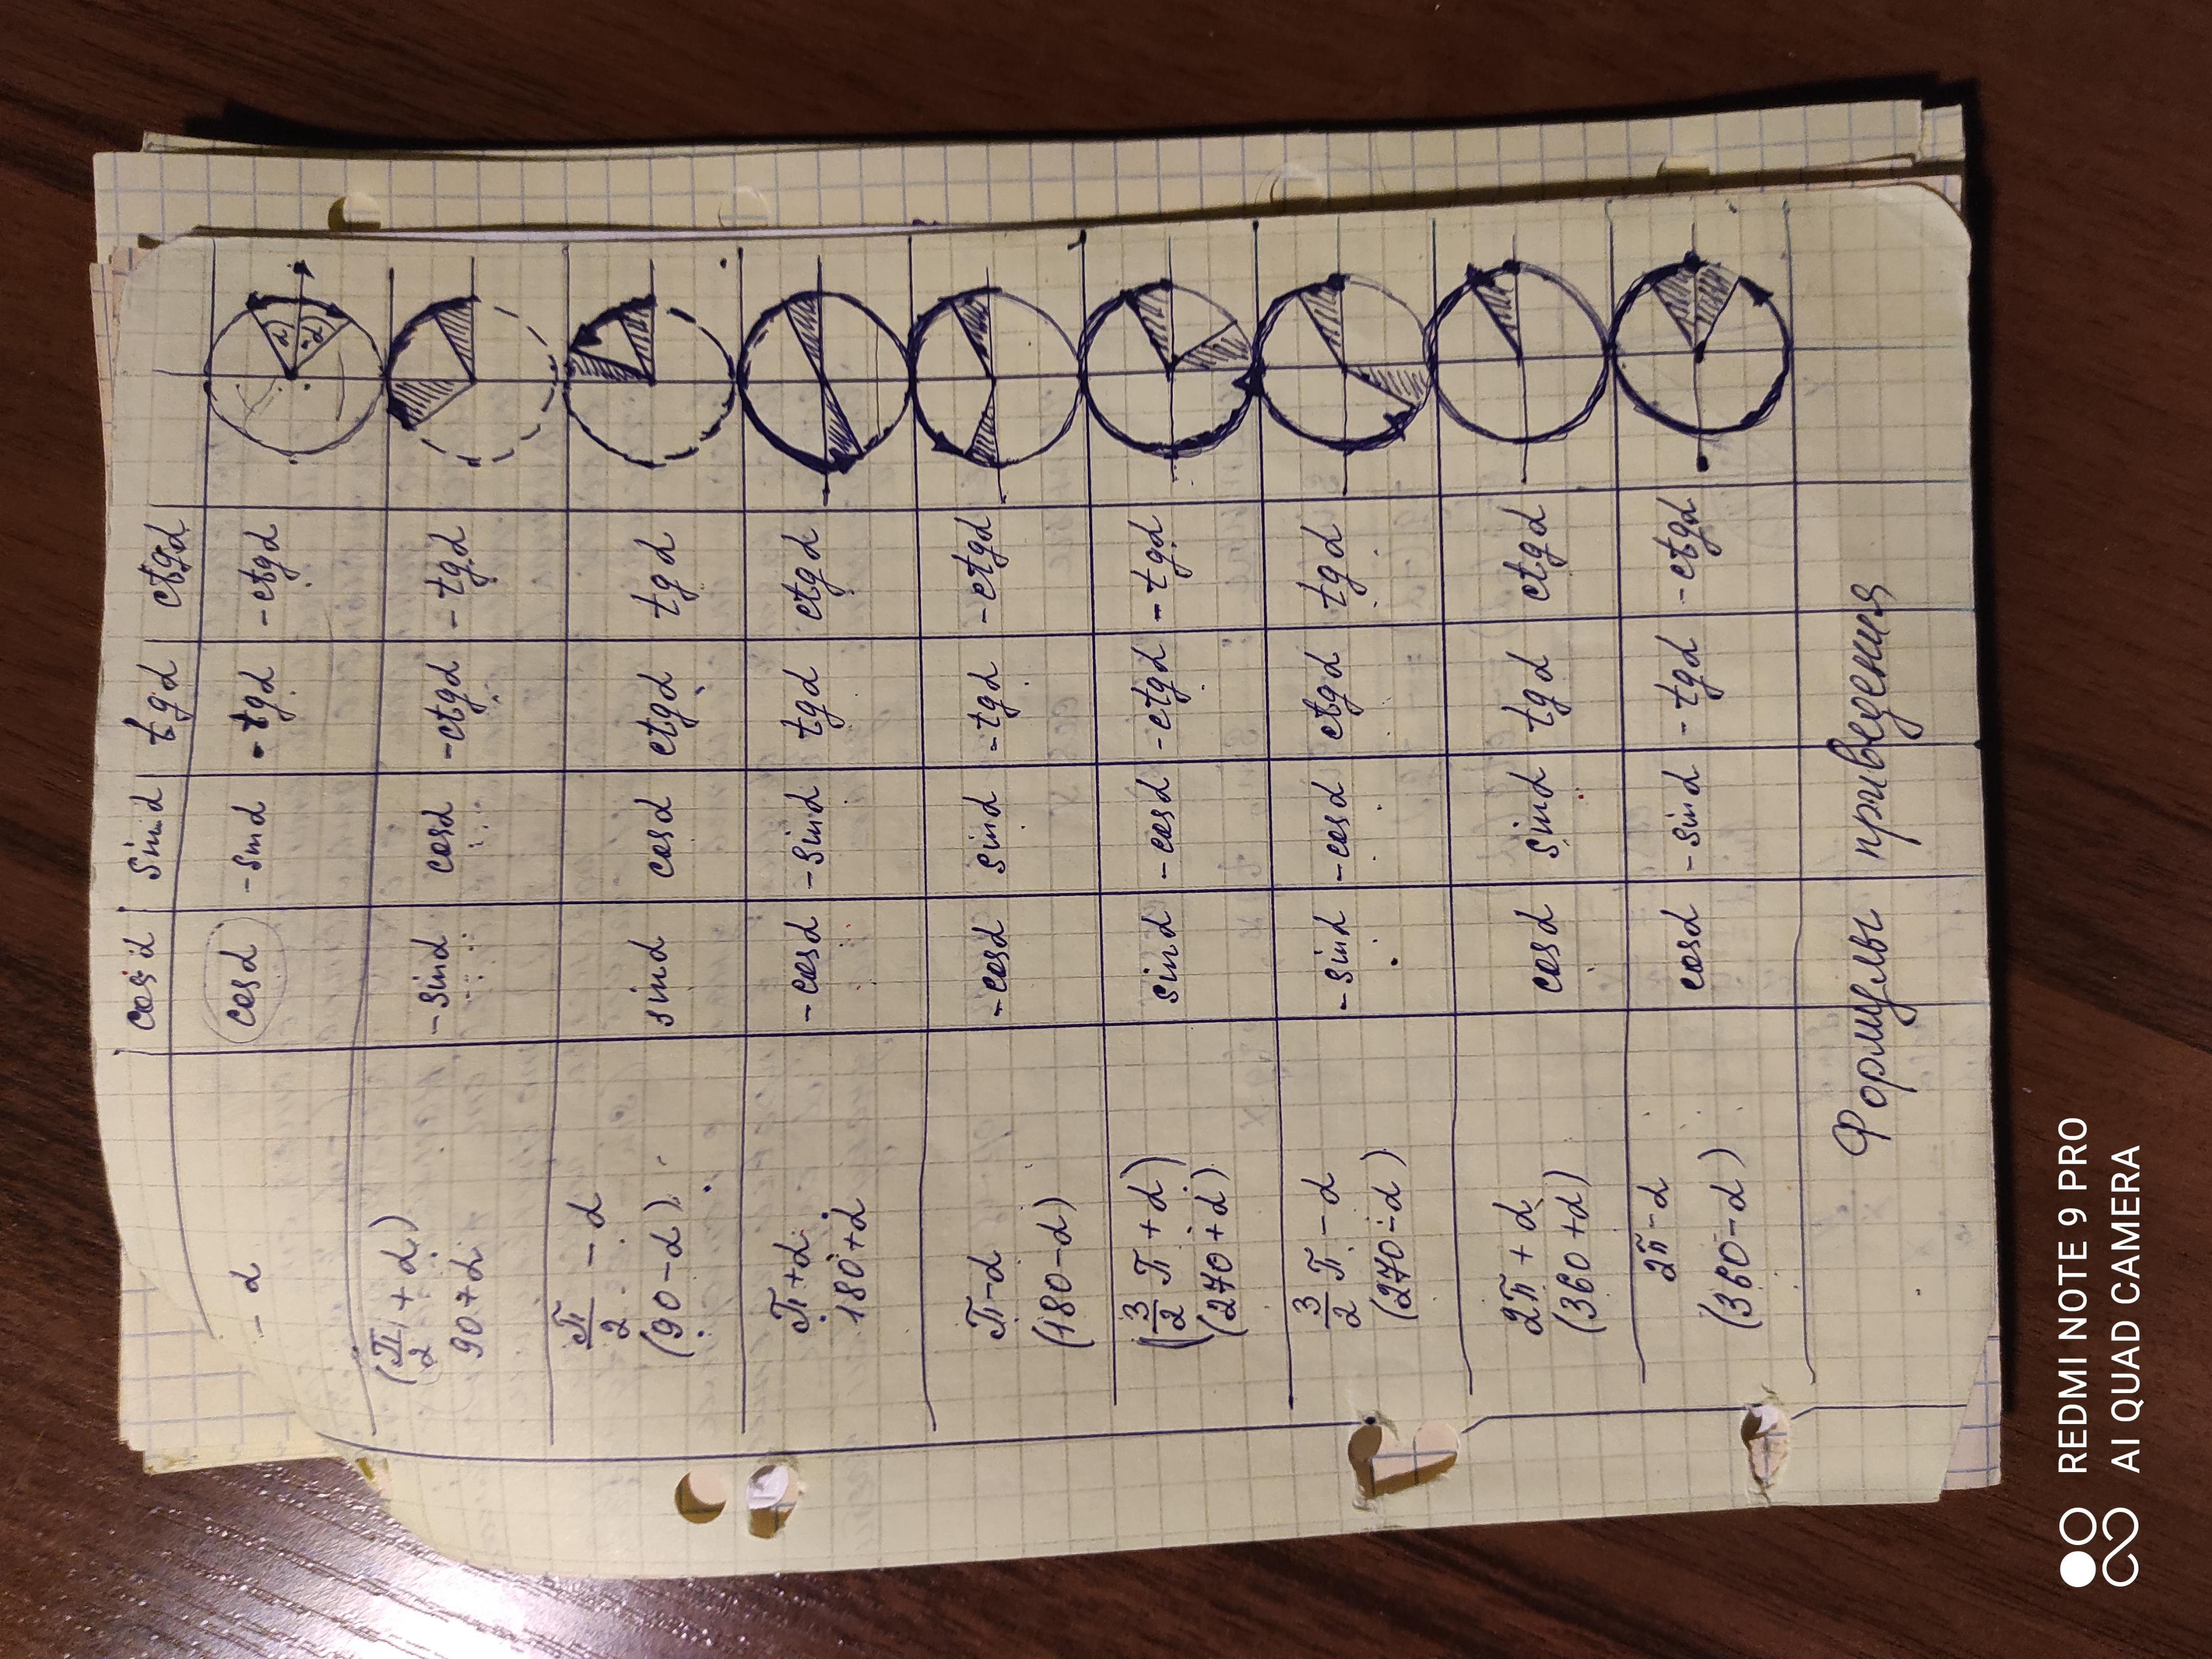 cos α | sin α | tg α | ctg α
- α | cos α | - sin α | - tg α | - ctg α
α - α
(π/2 + α) | - sin α | cos α | - ctg α | - tg α
90 + α
π/2 - α | sin α | cos α | ctg α | tg α
(90 - α)
π + α | - cos α | - sin α | tg α | ctg α
180 + α
π - α | - cos α | sin α | - tg α | - ctg α
(180 - α)
(3/2 π + α) | sin α | - cos α | - ctg α | - tg α
(270 + α)
3/2 π - α | - sin α | - cos α | ctg α | tg α
(270 - α)
2π + α | cos α | sin α | tg α | ctg α
(360 + α)
2π - α | cos α | - sin α | - tg α | - ctg α
(360 - α)
Формулы приведения
REDMI NOTE 9 PRO
AI QUAD CAMERA